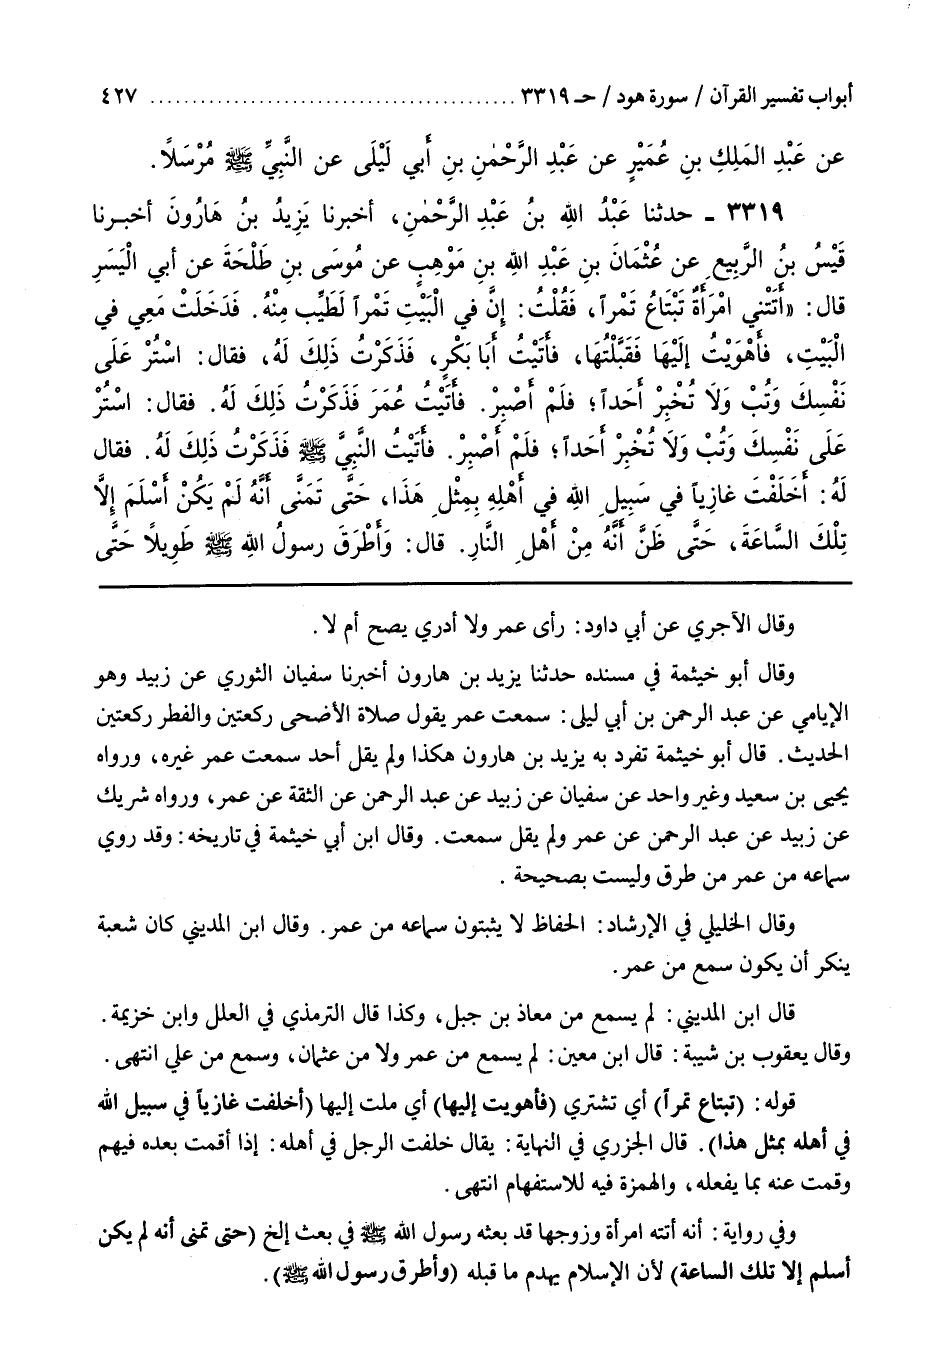 أبواب تفسير القرآن / سورة هود / حـ ٣٣١٩ ............................................ ٤٢٧
عن عَبْدِ المَلِكِ بنِ عُمَيْرٍ عن عَبْدِ الرَّحْمٰنِ بنِ أَبي لَيْلَى عن النَّبِيِّ ﷺ مُرْسَلاً.
٣٣١٩ ـ حدثنا عَبْدُ اللهِ بنُ عَبْدِ الرَّحْمٰنِ، أخبرنا يَزِيدُ بنُ هَارُونَ أخبـرنا
قَيْسُ بنُ الرَّبِيعِ عن عُثْمَانَ بنِ عَبْدِ اللهِ بنِ مَوْهِبٍ عن مُوسَى بنِ طَلْحَةَ عن أبي الْيَسَرِ
قال: «أَتَتْنِي امْرَأَةٌ تَبْتَاعُ تَمْراً، فَقُلْتُ: إِنَّ في الْبَيْتِ تَمْراً لَطَيِّب مِنْهُ. فَدَخَلَتْ مَعِي في
الْبَيْتِ، فَأَهْوَيْتُ إلَيْهَا فَقَبَّلْتُهَا، فَأَتَيْتُ أَبَا بَكْرٍ، فَذَكَرْتُ ذَلِكَ لَهُ، فقال: اسْتُرْ عَلَى
نَفْسِكَ وَتُبْ وَلَا تُخْبِرْ أَحَداً؛ فلَمْ أَصْبِرْ. فأَتَيْتُ عُمَرَ فَذَكَرْتُ ذَلِكَ لَهُ. فقال: اسْتُرْ
عَلَى نَفْسِكَ وَتُبْ وَلَا تُخْبِرْ أَحَداً؛ فلَمْ أَصْبِرْ. فأَتَيْتُ النَّبِيَّ ﷺ فَذَكَرْتُ ذَلِكَ لَهُ. فقال
لَهُ: أَخَلَفْتَ غازِياً في سَبِيلِ اللهِ في أَهْلِهِ بِمِثْلِ هَذَا، حَتَّى تَمَنَّى أَنَّهُ لَمْ يَكُنْ أَسْلَمَ إِلاَّ
تِلْكَ السَّاعَةَ، حَتَّى ظَنَّ أَنَّهُ مِنْ أَهْلِ النَّارِ. قال: وَأَطْرَقَ رسولُ اللهِ ﷺ طَوِيلاً حَتَّى
وقال الآجري عن أبي داود: رأى عمر ولا أدري يصح أم لا.
وقال أبو خيثمة في مسنده حدثنا يزيد بن هارون أخبرنا سفيان الثوري عن زبيد وهو
الإيامي عن عبد الرحمن بن أبي ليلى: سمعت عمر يقول صلاة الأضحى ركعتين والفطر ركعتين
الحديث. قال أبو خيثمة تفرد به يزيد بن هارون هكذا ولم يقل أحد سمعت عمر غيره، ورواه
يحيى بن سعيد وغير واحد عن سفيان عن زبيد عن عبد الرحمن عن الثقة عن عمر، ورواه شريك
عن زبيد عن عبد الرحمن عن عمر ولم يقل سمعت. وقال ابن أبي خيثمة في تاريخه: وقد روي
سماعه من عمر من طرق وليست بصحيحة.
وقال الخليلي في الإرشاد: الحفاظ لا يثبتون سماعه من عمر. وقال ابن المديني كان شعبة
ينكر أن يكون سمع من عمر.
قال ابن المديني: لم يسمع من معاذ بن جبل، وكذا قال الترمذي في العلل وابن خزيمة.
وقال يعقوب بن شيبة: قال ابن معين: لم يسمع من عمر ولا من عثمان، وسمع من علي انتهى.
قوله: (تبتاع تمراً) أي تشتري (فأهويت إليها) أي ملت إليها (أخلفت غازياً في سبيل الله
في أهله بمثل هذا). قال الجزري في النهاية: يقال خلفت الرجل في أهله: إذا أقمت بعده فيهم
وقمت عنه بما يفعله، والهمزة فيه للاستفهام انتهى.
وفي رواية: أنه أتته امرأة وزوجها قد بعثه رسول الله ﷺ في بعث إلخ (حتى تمنى أنه لم يكن
أسلم إلا تلك الساعة) لأن الإسلام يهدم ما قبله (وأطرق رسول الله ﷺ).